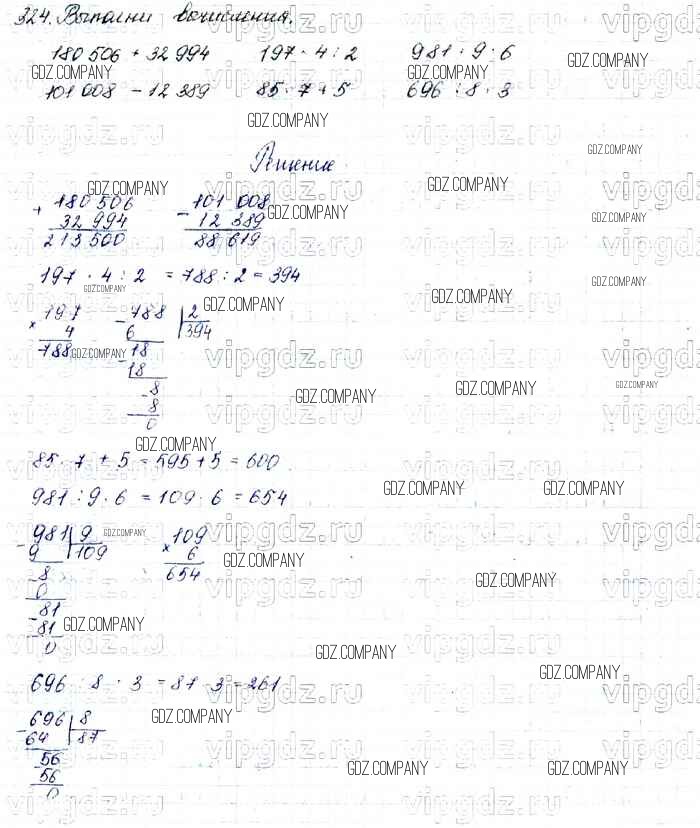 324. Выполни вычисления.
180 506 + 32 994 197 · 4 : 2 981 : 9 · 6
101 008 - 12 389 85 · 7 + 5 696 : 8 · 3
Решение.
+ 180 506 - 101 008
32 994 12 389
213 500 88 619
197 · 4 : 2 = 788 : 2 = 394
× 197 - 788 | 2
4 6 394
788 - 18
18
- 8
8
0
85 · 7 + 5 = 595 + 5 = 600
981 : 9 · 6 = 109 · 6 = 654
- 981 | 9 × 109
9 109 6
- 8 654
0
- 81
81
0
696 : 8 · 3 = 87 · 3 = 261
- 696 | 8
64 87
- 56
56
0
GDZ.COMPANY
vipgdz.ru